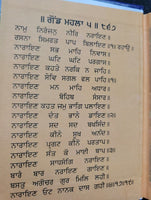 ॥ ਗੋਂਡ ਮਹਲਾ ੫ ॥ ੮੬੭
ਨਾਮੁ ਨਿਰੰਜਨੁ ਨੀਰਿ ਨਰਾਇਣ ॥
ਰਸਨਾ ਸਿਮਰਤ ਪਾਪ ਬਿਲਾਇਣ ॥੧॥ ਰਹਾਉ ॥
ਨਾਰਾਇਣ ਸਭ ਮਾਹਿ ਨਿਵਾਸ ॥
ਨਾਰਾਇਣ ਘਟਿ ਘਟਿ ਪਰਗਾਸ ॥
ਨਾਰਾਇਣ ਕਹਤੇ ਨਰਕਿ ਨ ਜਾਹਿ ॥
ਨਾਰਾਇਣ ਸੇਵਿ ਸਗਲ ਫਲ ਪਾਹਿ ॥੧॥
ਨਾਰਾਇਣ ਮਨ ਮਾਹਿ ਅਧਾਰ ॥
ਨਾਰਾਇਣ ਬੋਹਿਥ ਸੰਸਾਰ ॥
ਨਾਰਾਇਣ ਕਹਤ ਜਮੁ ਭਾਗਿ ਪਲਾਇਣ ॥
ਨਾਰਾਇਣ ਦੰਤ ਭਾਨੇ ਡਾਇਣ ॥੨॥
ਨਾਰਾਇਣ ਸਦ ਸਦ ਬਖਸਿੰਦ ॥
ਨਾਰਾਇਣ ਕੀਨੇ ਸੂਖ ਅਨੰਦ ॥
ਨਾਰਾਇਣ ਪ੍ਰਗਟ ਕੀਨੋ ਪਰਤਾਪ ॥
ਨਾਰਾਇਣ ਸੰਤ ਕੋ ਮਾਈ ਬਾਪ ॥੩॥
ਨਾਰਾਇਣ ਸਾਧਸੰਗਿ ਨਰਾਇਣ ॥
ਬਾਰੰ ਬਾਰ ਨਰਾਇਣ ਗਾਇਣ ॥
ਬਸਤੁ ਅਗੋਚਰ ਗੁਰ ਮਿਲਿ ਲਹੀ ॥
ਨਾਰਾਇਣ ਓਟ ਨਾਨਕ ਦਾਸ ਗਹੀ ॥੪॥੧੭॥੧੯॥